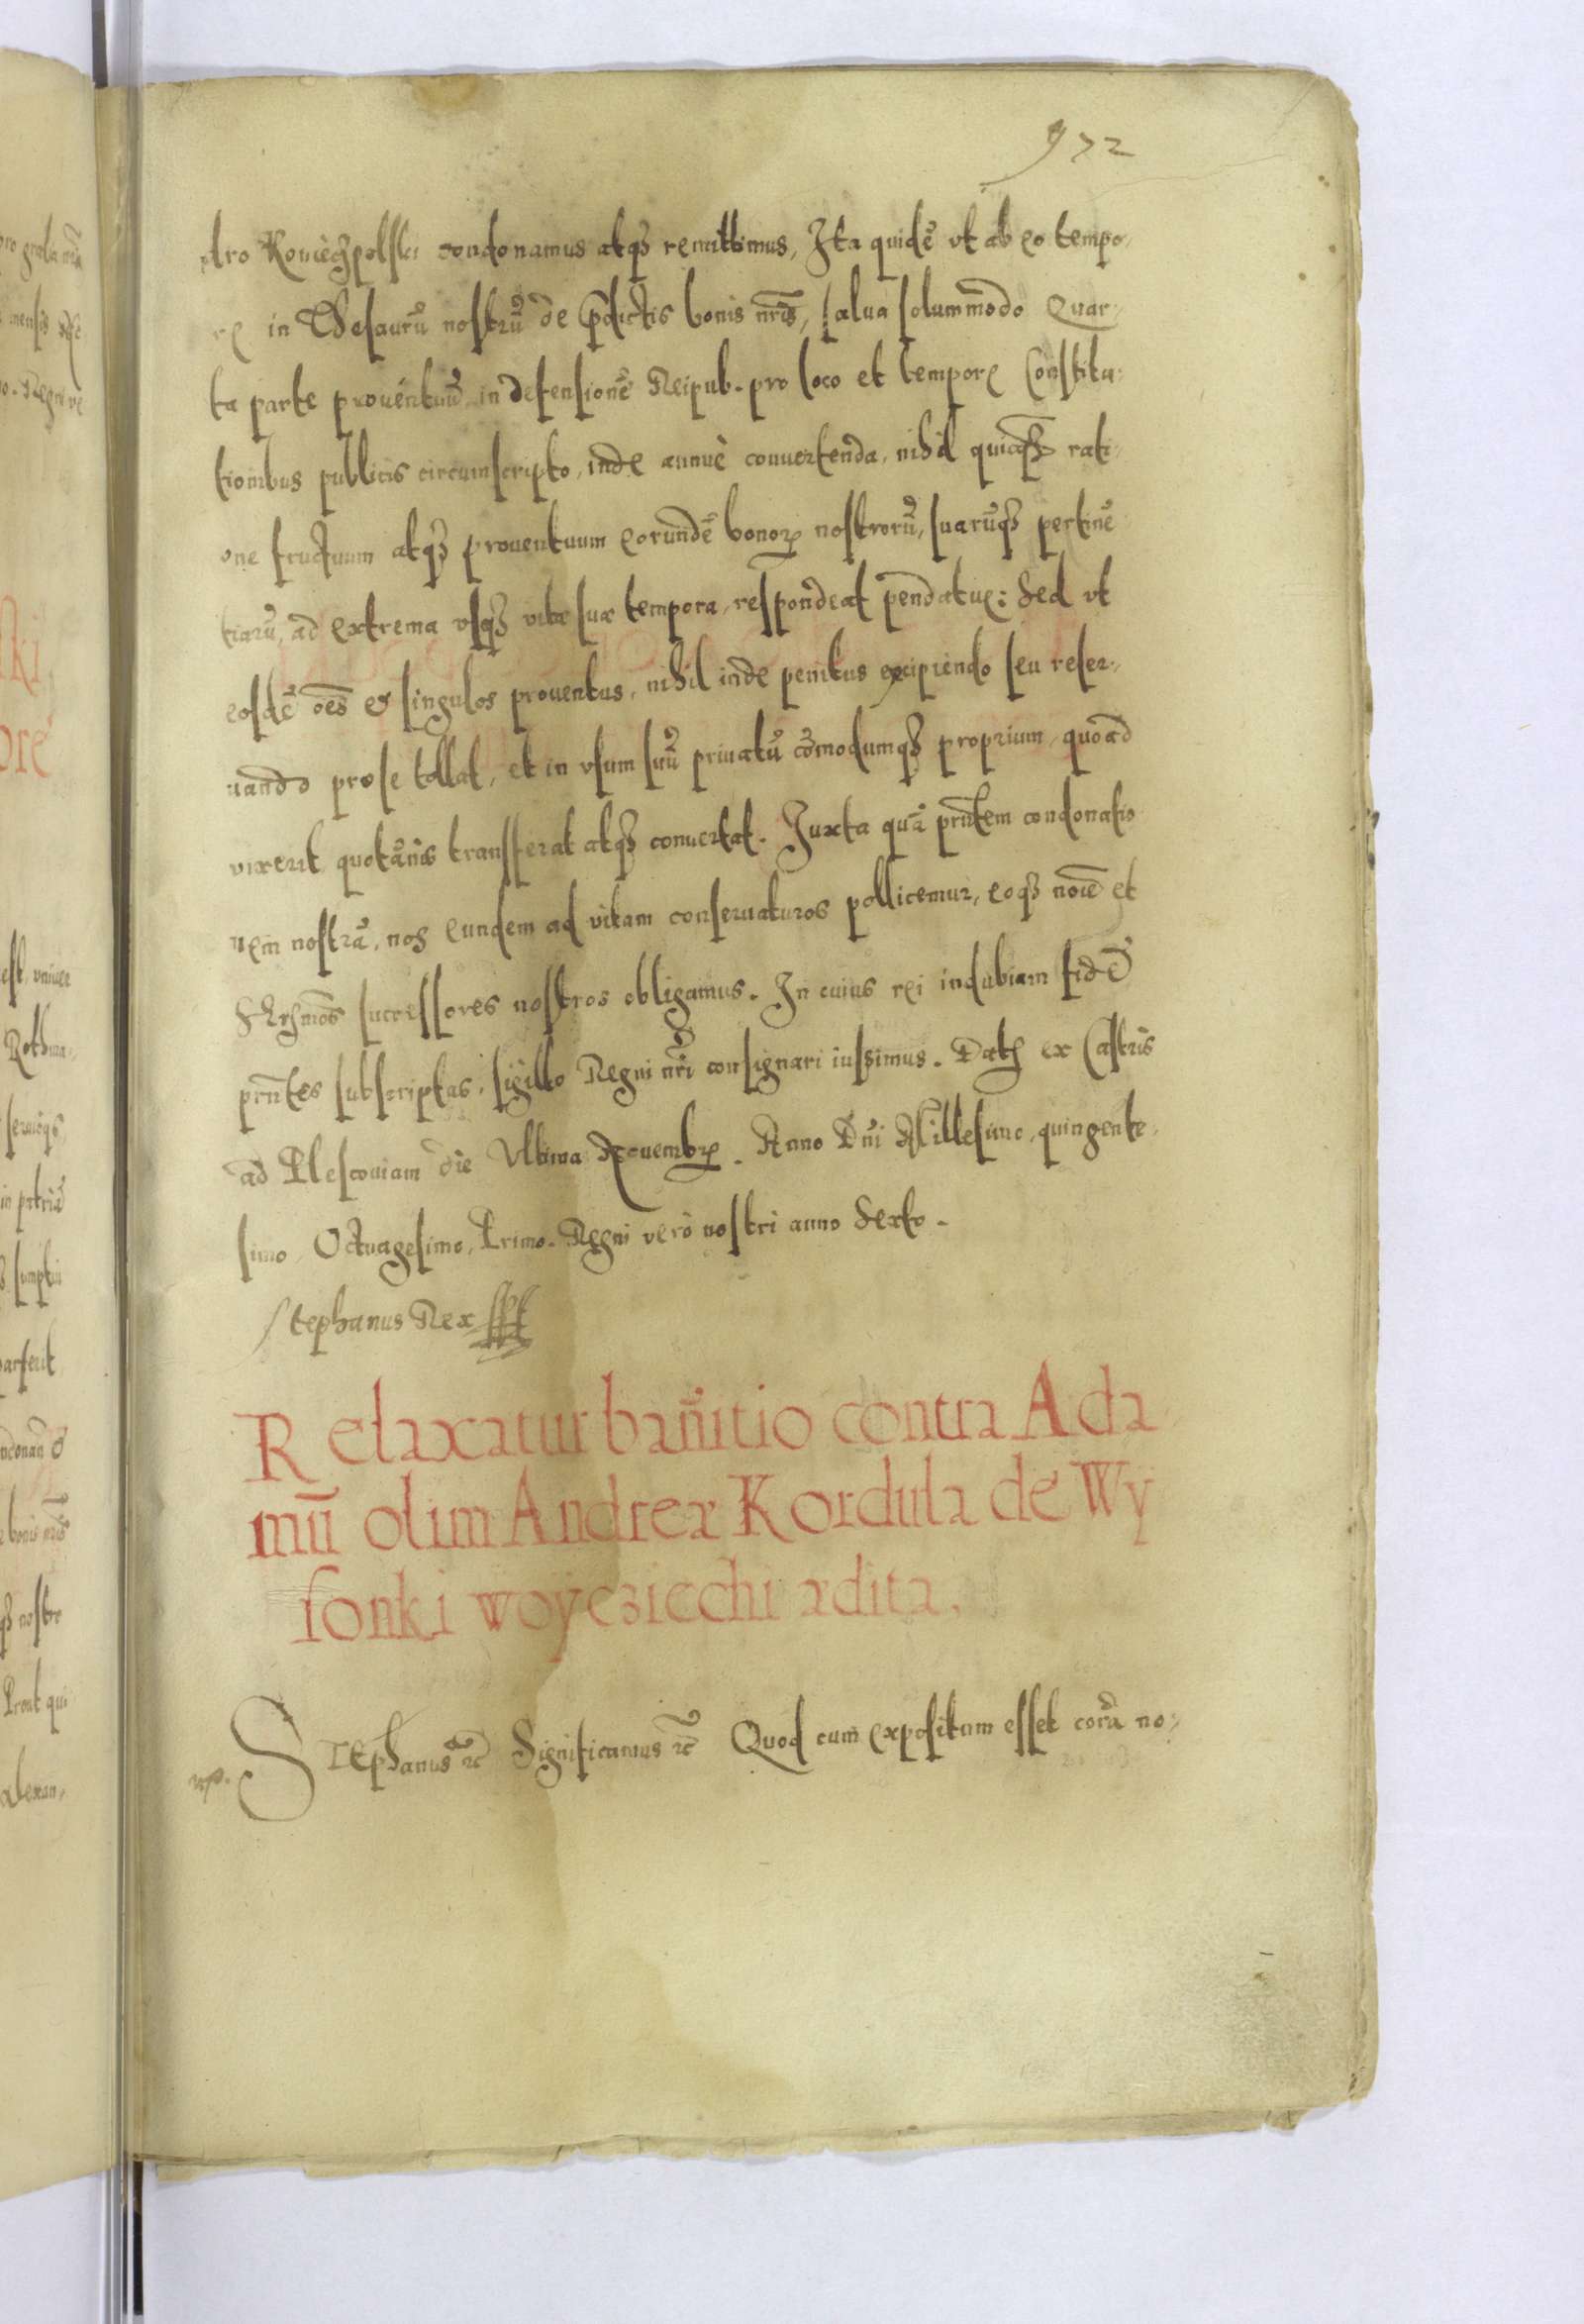 972
dro Konieczpolski condonamus atq3 remittimus, Ita quidē vt ab eo tempo,
re in Thesaurū nostrū de p̄dictis bonis nr̄is, salua solummodo Quar,
ta parte prouentuū in defensionē Reipub. pro loco et tempore Constitu,
tionibus publicis circumscripto, inde annuè conuertenda, nihil quicq3 rati,
one fructuum atq3 prouentuum eorundē bonorꝝ nostrorū, suarūq3 pertinē
tiarū, ad extrema vsq3 vitæ suæ tempora, respondeat pendatue: Sed vt
eosdē oēs et singulos prouentus, nihil inde penitus excipiendo seu reser,
uando pro se tollat, et in vsum suū priuatū cōmodumq3 proprium, quoad
vixerit quotānis transferat atq3 conuertat. Iuxta quā prn̄tem condonatio
nem nostrā, nos eundem ad vitam conseruaturos pollicemur, eoq3 noīe et
Ser̄mos successores nostros obligamus. In cuius rei indubiam fidē
prn̄tes subscriptas, sigillo Regni nr̄i consignari iussimus. Datꝫ ex Castris
ad Plescouiam die Vltima Nouembrꝭ. Anno Dn̄i Millesimo, quingente,
simo Octuagesimo, Primo. Regni verò nostri anno Sexto.
Stephanus Rex
Relaxatur bānitio contra Ada
mū olim Andreæ Kordula de Wy
sonki woycziechi ædita.
STEphanus ꝛc̄ Significamus ꝛc̄ Quod cum expositum esset corā no,